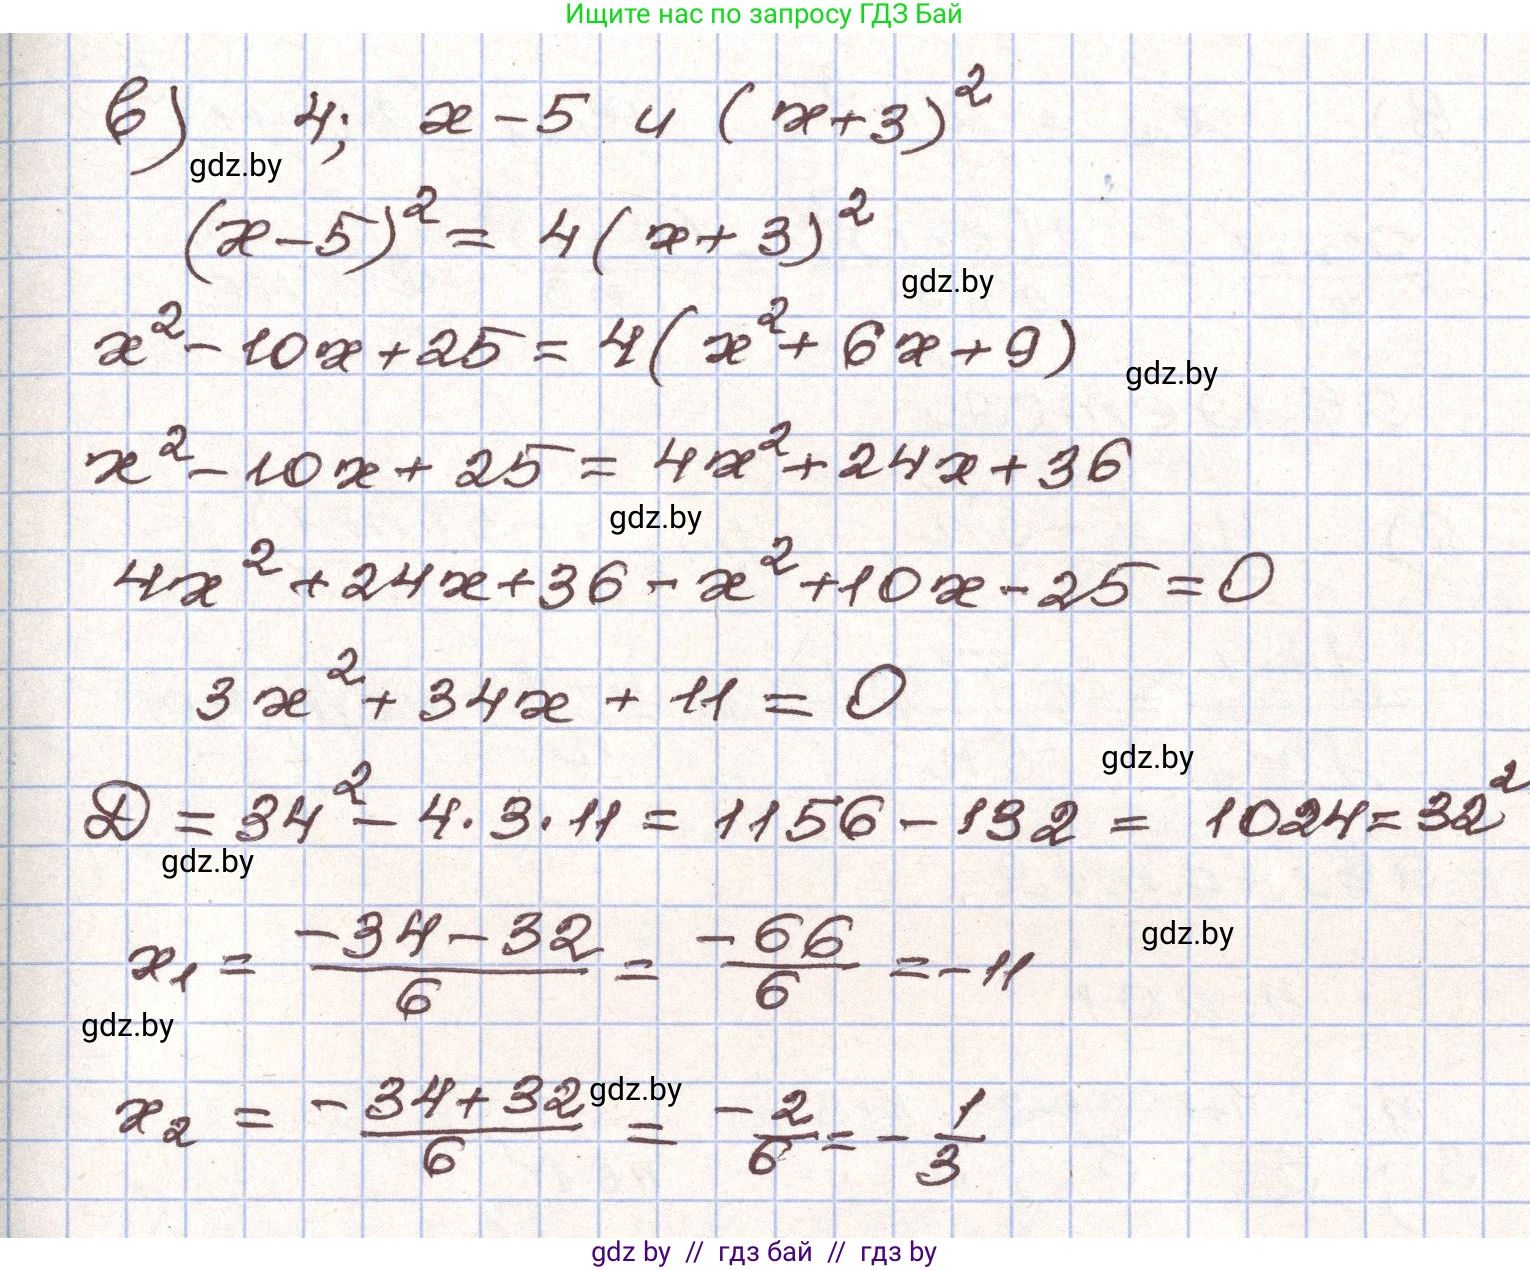 Ищите нас по запросу ГДЗ Бай
в) 4; x - 5 и (x + 3)²
gdz.by
(x - 5)² = 4(x + 3)²
gdz.by
x² - 10x + 25 = 4(x² + 6x + 9)
gdz.by
x² - 10x + 25 = 4x² + 24x + 36
gdz.by
4x² + 24x + 36 - x² + 10x - 25 = 0
3x² + 34x + 11 = 0
gdz.by
D = 34² - 4·3·11 = 1156 - 132 = 1024 = 32²
gdz.by
gdz.by
x₁ = (-34 - 32)/6 = -66/6 = -11
gdz.by
gdz.by
x₂ = (-34 + 32)/6 = -2/6 = -1/3
gdz by // гдз бай // гдз by